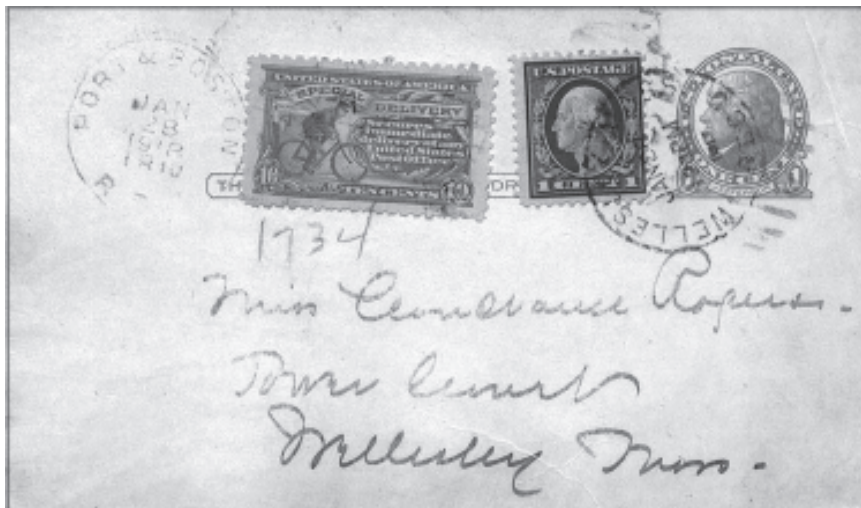 PORT & BOS
JAN
28
UNITED STATES OF AMERICA
SPECIAL DELIVERY
Secures
immediate
delivery at any
United States
Post Office
10 TEN CENTS 10
U.S. POSTAGE
1 CENT
TH
OR
WELLES
1734
Miss Constance Rogers.
Tower Court
Wellesley Mass.